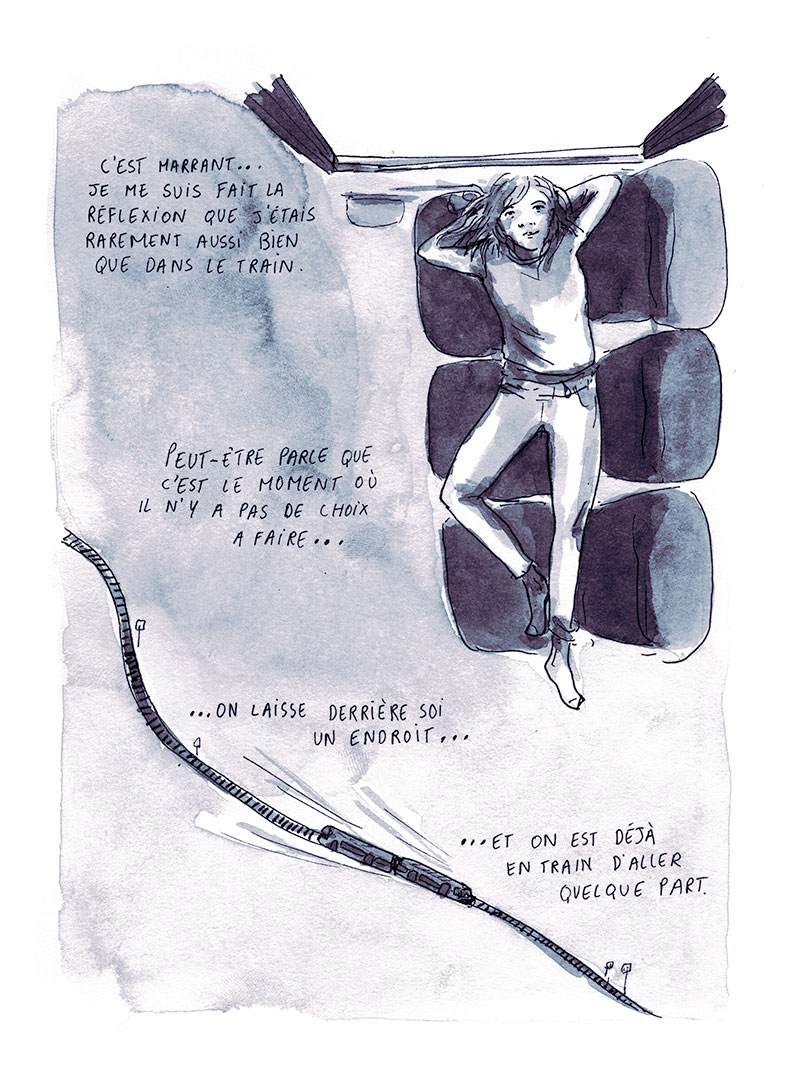 C'EST MARRANT...
JE ME SUIS FAIT LA
RÉFLEXION QUE J'ÉTAIS
RAREMENT AUSSI BIEN
QUE DANS LE TRAIN.
PEUT-ÊTRE PARCE QUE
C'EST LE MOMENT OÙ
IL N'Y A PAS DE CHOIX
A FAIRE...
...ON LAISSE DERRIÈRE SOI
UN ENDROIT...
...ET ON EST DÉJÀ
EN TRAIN D'ALLER
QUELQUE PART.